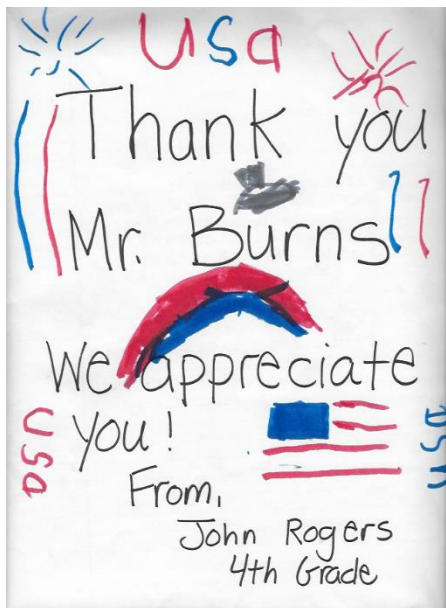 USa
Thank you
Mr. Burns
We appreciate
you!
USa
USA
From,
John Rogers
4th Grade